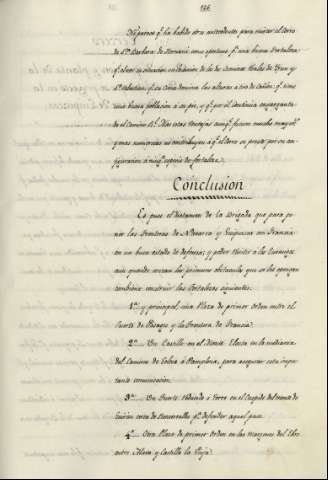 126
No parece q.e ha habido otro antecedente para mirar el cerro
de S.ta Barbara de Hernani como oportuno p.a una buena Fortaleza
q.e el ser su situacion inmediacion de la de dominar Valles de Yrun y
S.n Sebastian p.r su Cima domina las alturas a tiro de Cañon, q.e tiene
una buena poblacion a su pie, y q.e por el sur dista
el Camino R.l Mas estas ventajas aunq.e fuesen mucho mayores
y mas numerosas no constituyen a q.e el Cerro se preste por su con-
figuracion á ning.a especie de fortaleza.
Conclusion
Es pues el dictamen de la Brigada que para po-
ner las fronteras de Navarra y Guipuzcoa con Francia
en un buen estado de defensa; y poder resistir a los Enemigos
aun quando venzan los primeros obstaculos que se les opongan
combiene construir las fortalezas siguientes.
1.a y principal, una Plaza de primer orden entre el
Puerto de Pasages y la frontera de Francia.
2.a Un Castillo en el Monte Elosta en la mediania
del Camino de Tolosa á Pamplona, para asegurar esta impor-
tante comunicacion.
3.a Un Fuerte Reducido ó Torre en el
cerca de Roncesvalles q.e defienda aquel paso.
4.a Otra Plaza de primer orden en las margenes del Ebro
entre Alava y Castilla la Vieja.